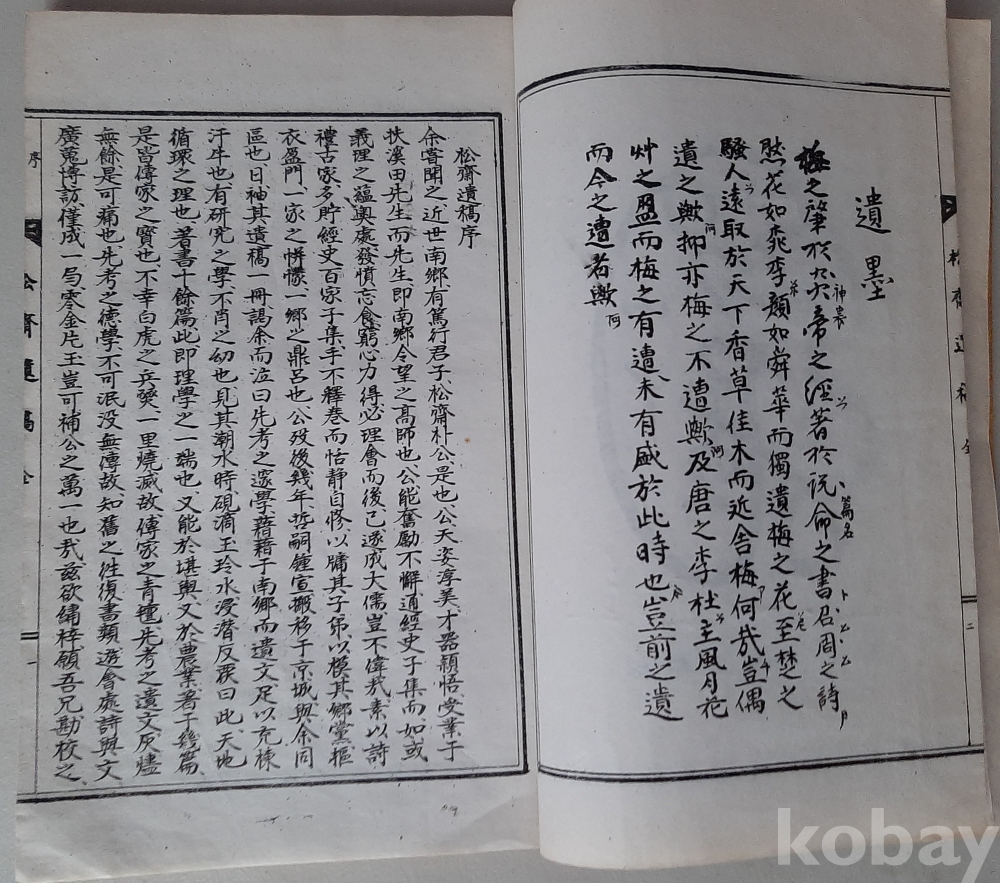 遺墨
梅之肇於炎帝之經著於說命之書召周之詩
神農
篇名
然花如桃李顏如舜華而獨遺梅之花至楚之
騷人遠取於天下香草佳木而近舍梅何哉豈偶
遺之歟抑亦梅之不遭歟及唐之李杜主風月花
艸之盟而梅之有遭未有盛於此時也豈前之遺
而今之遭者歟
三
松齋遺稿 全
松齋遺稿序
余嘗聞之近世南鄉有篤行君子松齋朴公是也公天姿淳美才器穎悟受業于
扶溪田先生而先生即南鄉令望之高師也公能奮勵不懈通經史子集而如或
義理之蘊奧處發憤忘食窮心力得必理會而後已遂成大儒豈不偉哉素以詩
禮古家多貯經史百家子集手不釋卷而恬静自修以牖其子弟以模其鄉黨摳
衣盈門一家之帡幪一鄉之鼎呂也公歿後幾年哲嗣鍾宣搬移于京城與余同
區也日袖其遺稿一冊謁余而泣曰先考之邃學藉藉于南鄉而遺文足以充棟
汗牛也有研究之學不肖之幼也見其潮水時硯滴玉玲水浸潜反覆曰此天地
循環之理也著書十餘篇此即理學之一端也又能於堪輿又於農業著于幾篇
是皆傳家之寶也不幸白虎之兵燹一里燒滅故傳家之青氊先考之遺文灰燼
無餘是可痛也先考之德學不可泯没無傳故知舊之往復書類遊會處詩與文
廣蒐博訪僅成一局零金片玉豈可補公之萬一也哉玆欲繡梓願吾兄勘校之
序
松齋遺稿 全
一
kobay